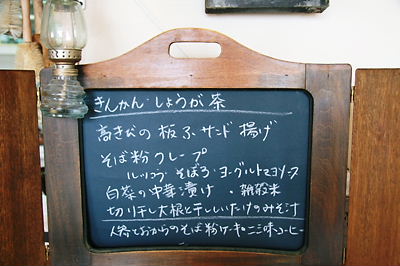 きんかん・しょうが茶
高きびの板ふサンド揚げ
そば粉クレープ
そぼろ・ヨーグルトマヨソース
白菜の中華漬け・雑穀米
切り干し大根と干ししいたけのみそ汁
人参とおからのそば粉ケーキ・三味コーヒー